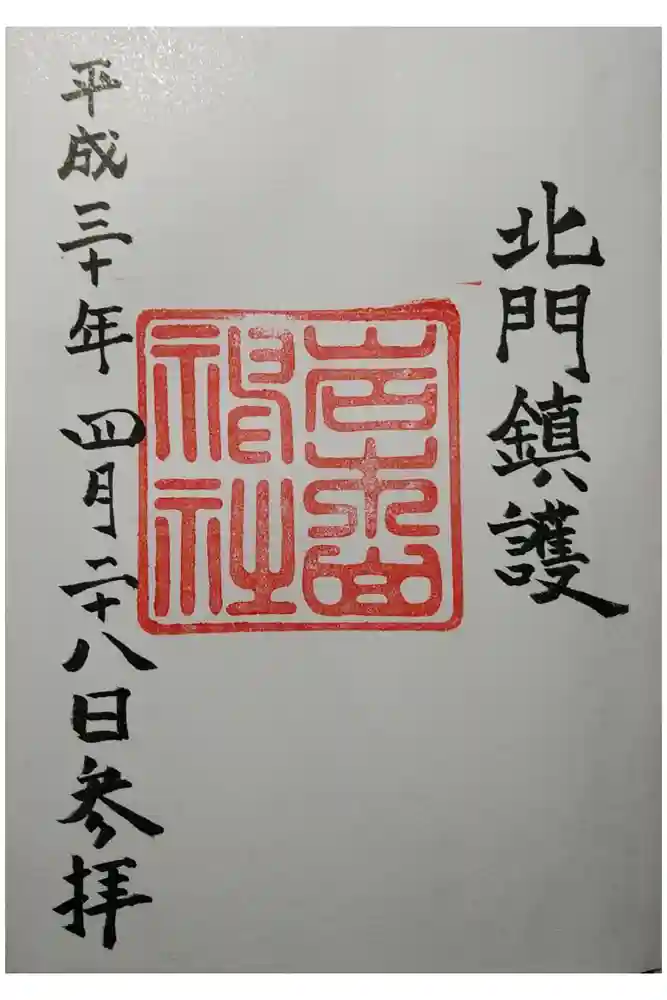 北門鎮護
岩木山
神社
平成三十年 四月二十八日参拝